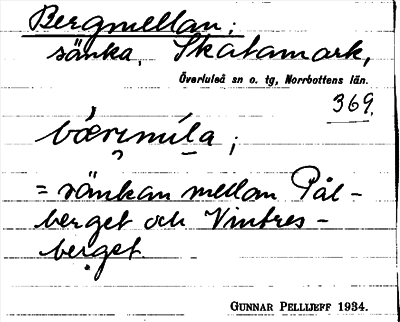 Bergmellan;
sänka, Skatamark,
Överluleå sn o. tg, Norrbottens län.
369.
bærmila;
= sänkan mellom Pål-
berget och Vintres-
berget.
GUNNAR PELLIJEFF 1934.